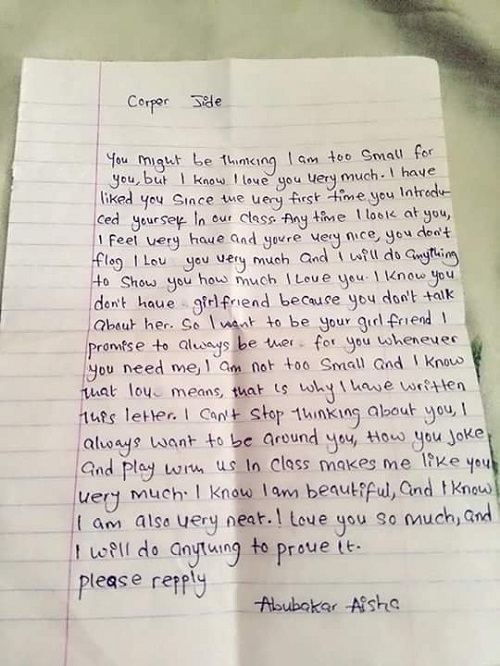 Corper Jide
You might be thinking I am too small for
you, but I know I love you very much. I have
liked you since the very first time you Introdu-
ced yourself In our class. Any time I look at you,
I feel very have and youre very nice, you don't
flog I Lou you very much and I will do anything
to show you how much I Love you. I know you
don't have girlfriend because you don't talk
About her. So I want to be your girl friend I
promise to always be ther for you whenever
you need me, I am not too small and I know
that lov means, that is why I have written
this letter. I can't stop thinking about you, I
always want to be around you, How you joke
and play with us In class makes me like you
very much. I know I am beautiful, and I know
I am also very neat. I love you so much, and
I will do anything to prove it.
please repply
Abubakar Aisha